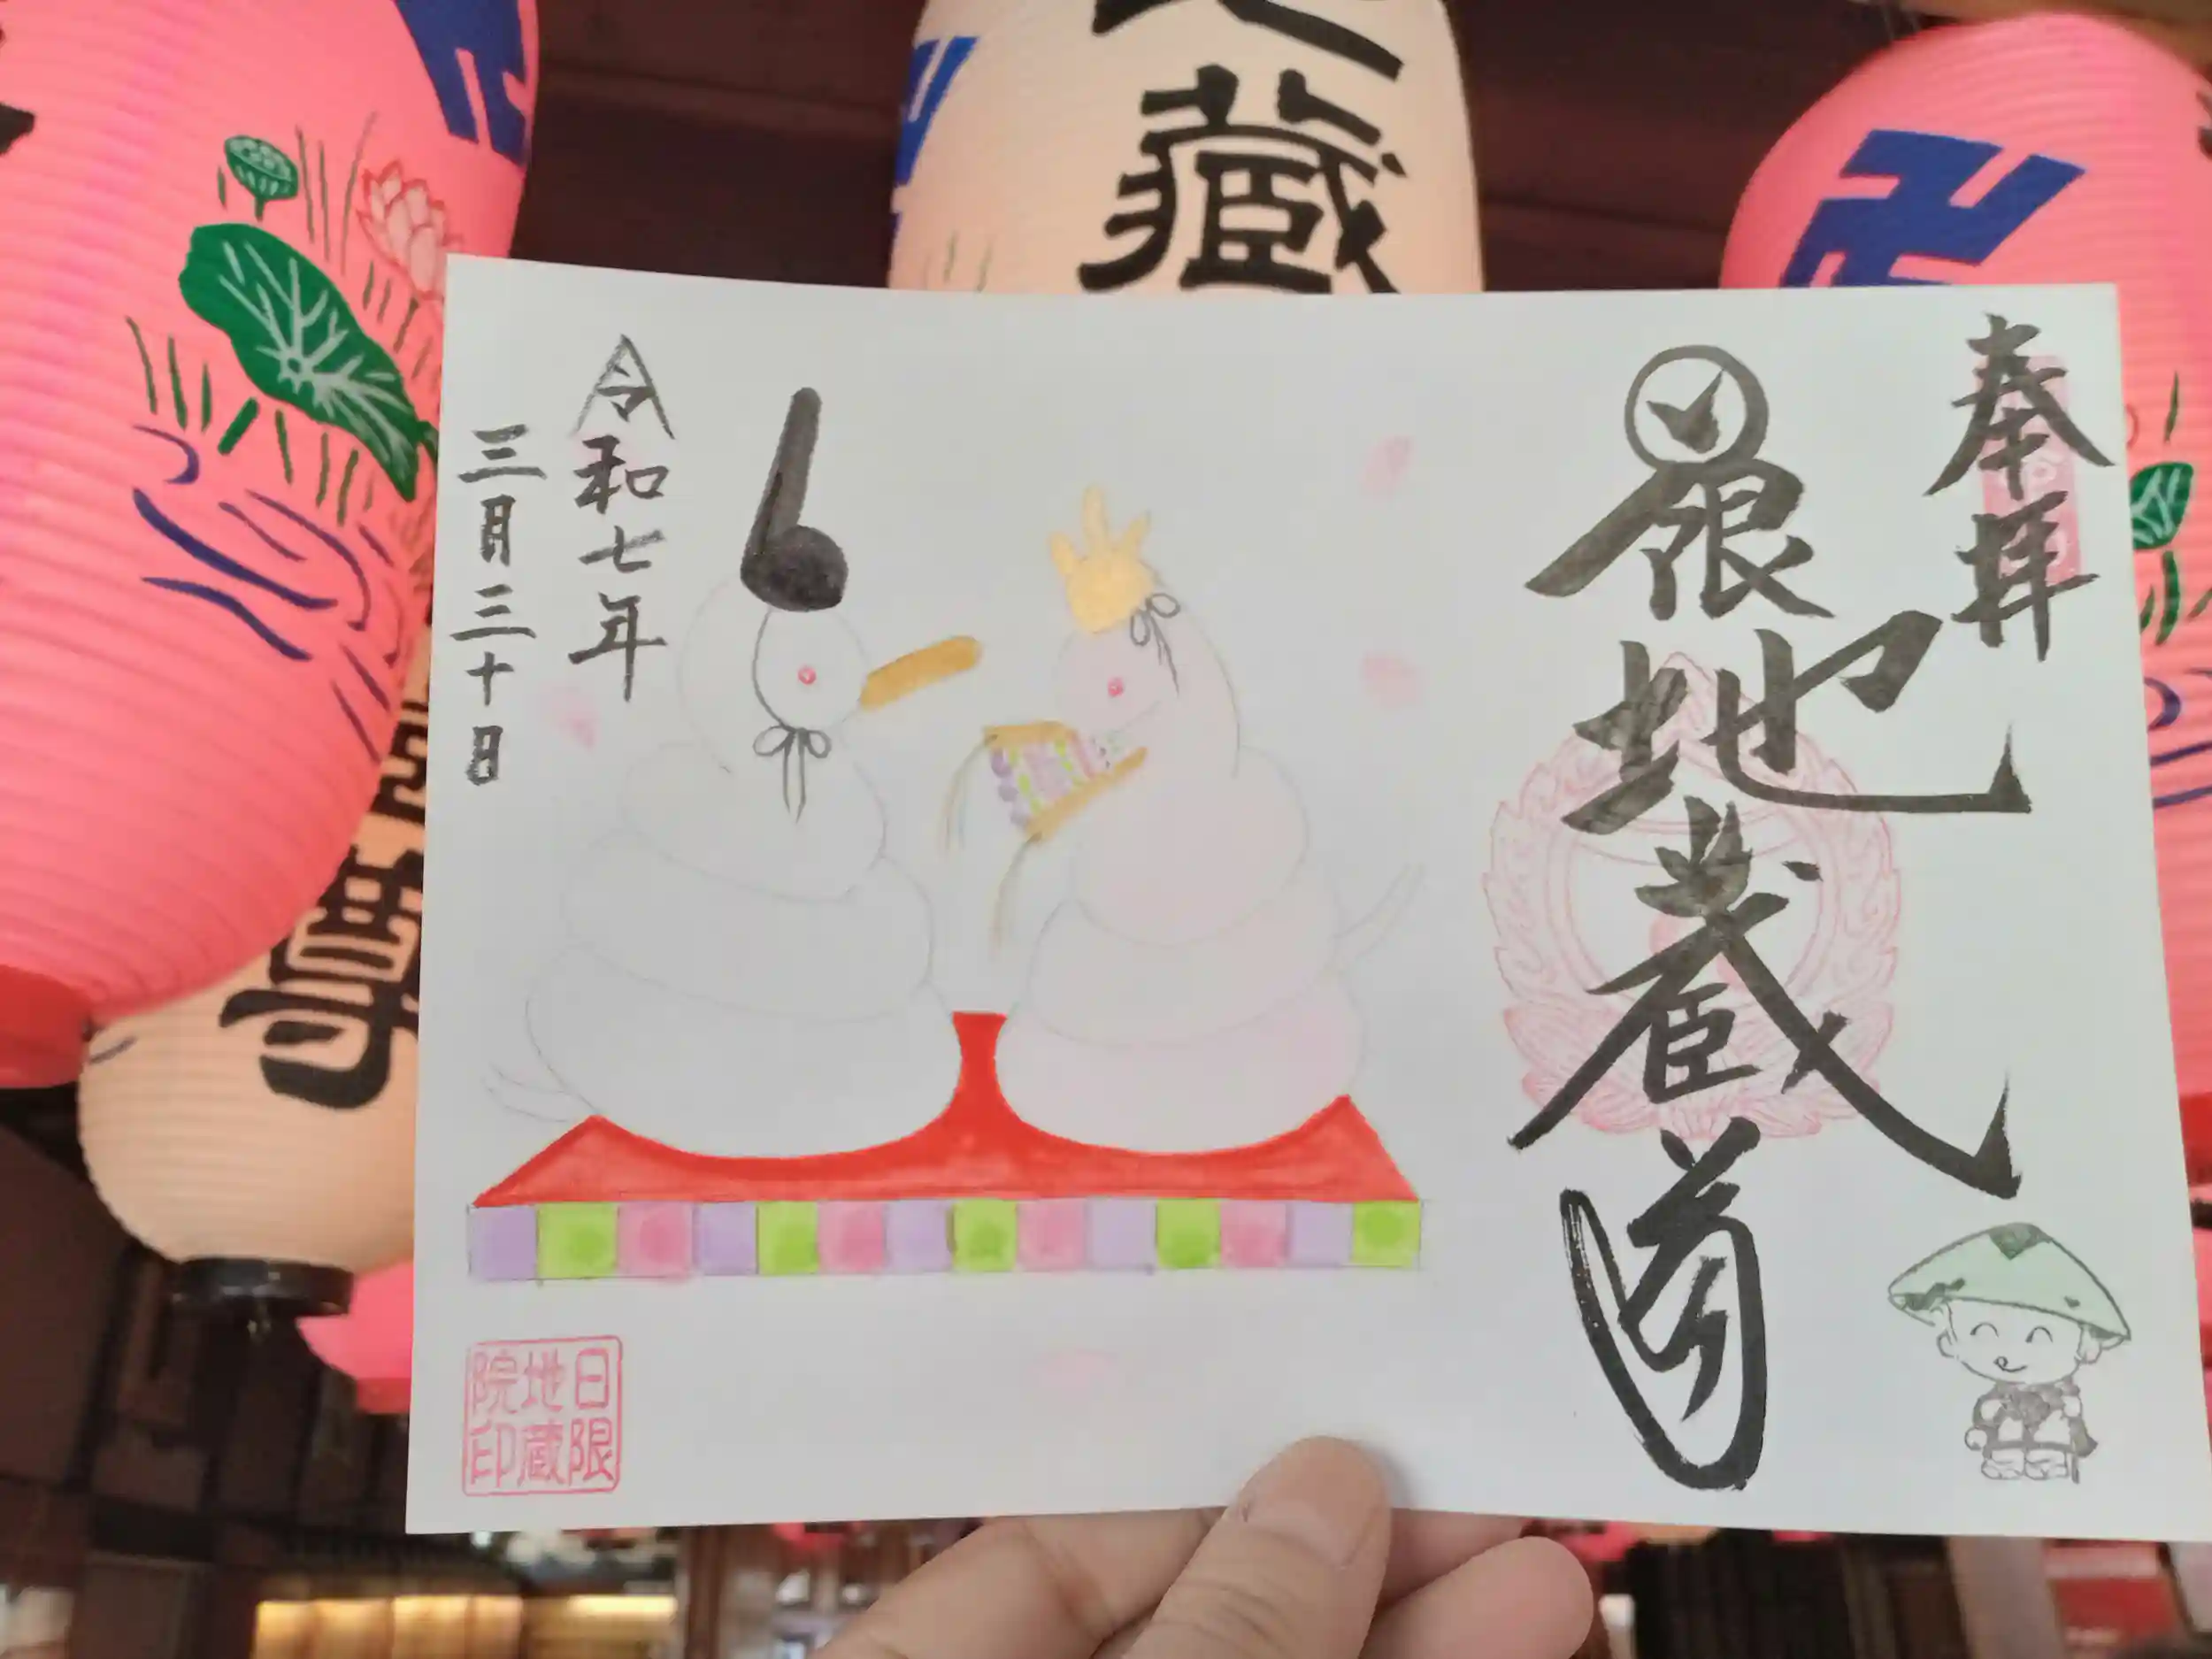 奉拝
日限地蔵尊
令和七年
三月三十日
日限
地蔵
院印
蔵
尊
卍